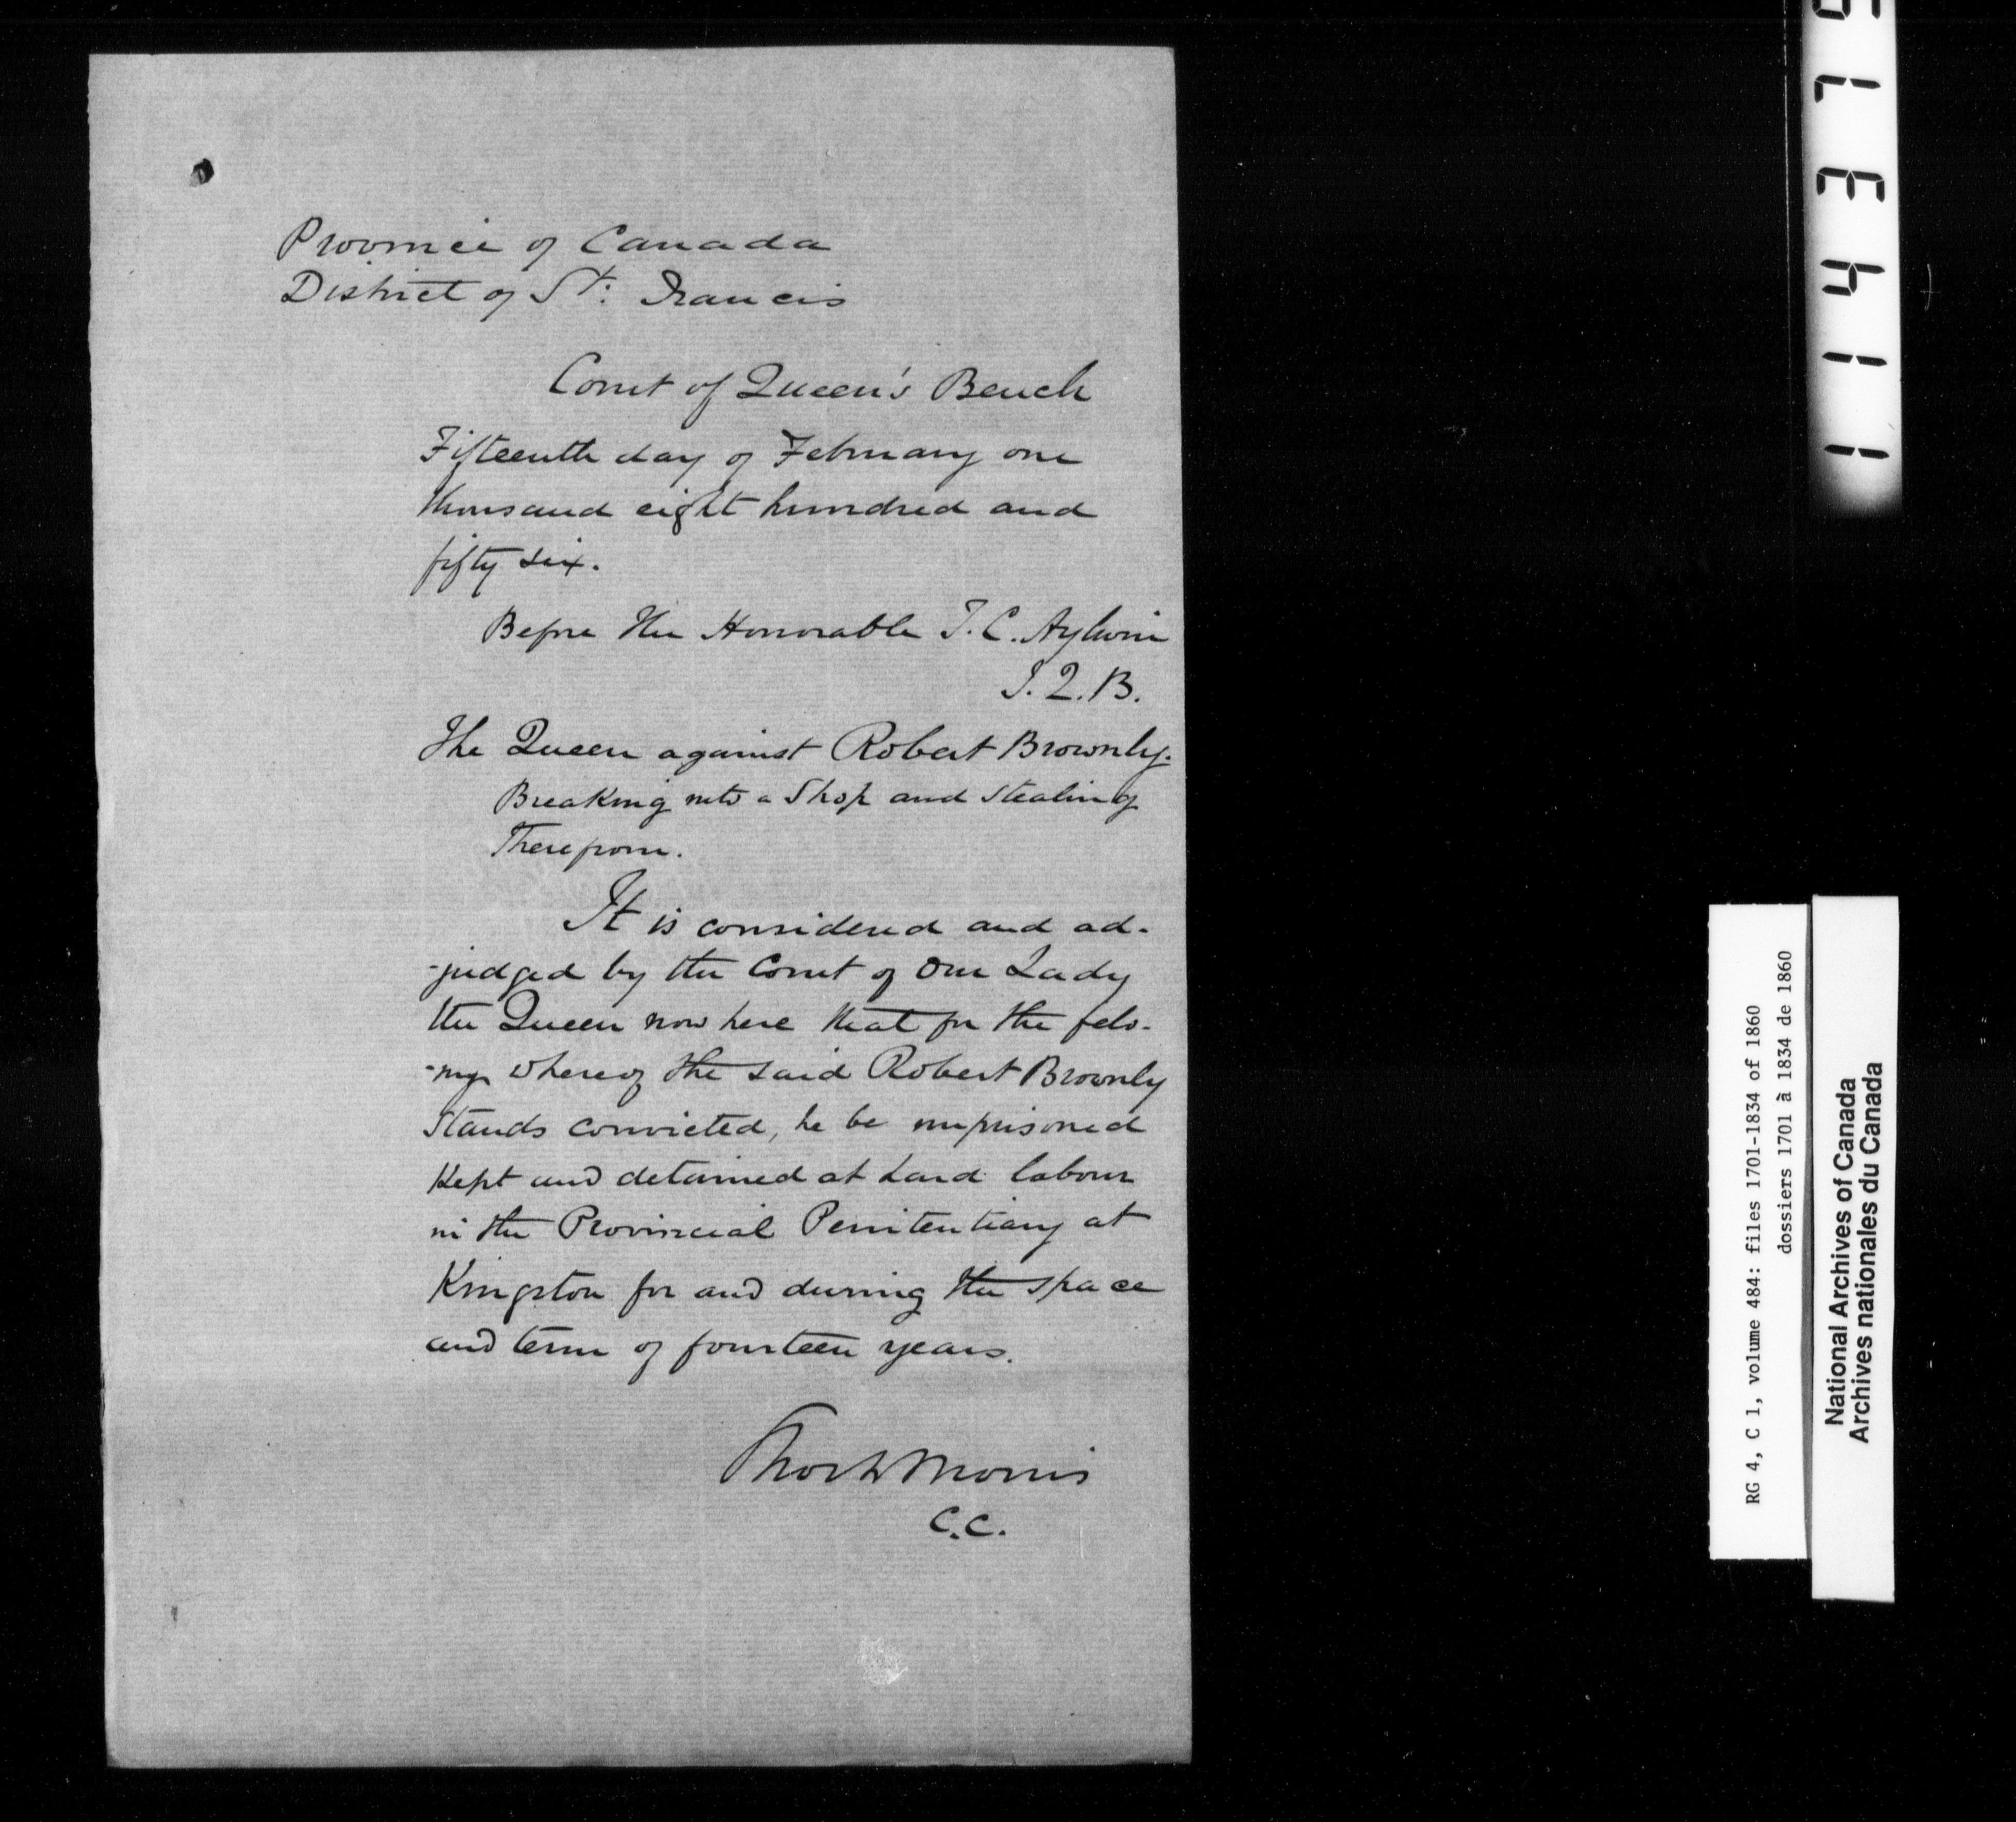 Province of Canada
District of St: Francis
Court of Queen's Bench
Fifteenth day of February one
thousand eight hundred and
fifty six.
Before the Honorable T. C. Aylwin
J. Q. B.
The Queen against Robert Brownly.
Breaking into a Shop and Stealing
Therefrom.
It is considered and ad-
-judged by the Court of Our Lady
the Queen now here that for the felo-
-ny whereof the said Robert Brownly
Stands convicted, he be imprisoned
Kept and detained at hard labour
in the Provincial Penitentiary at
Kingston for and during the space
and term of fourteen years.
Morris
C.C.
RG 4, C 1, volume 484: files 1701-1834 of 1860
dossiers 1701 à 1834 de 1860
National Archives of Canada
Archives nationales du Canada